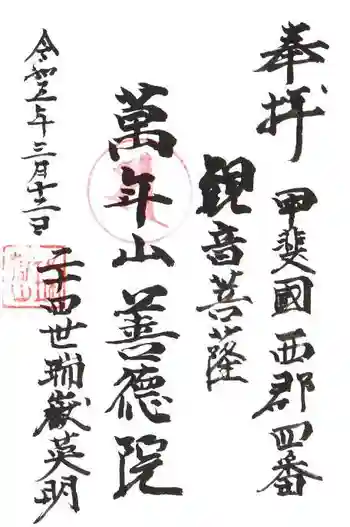 奉拝
甲斐國西郡四番
観音菩薩
萬年山善徳院
令和五年三月十二日
二十四世瑞嶽英明